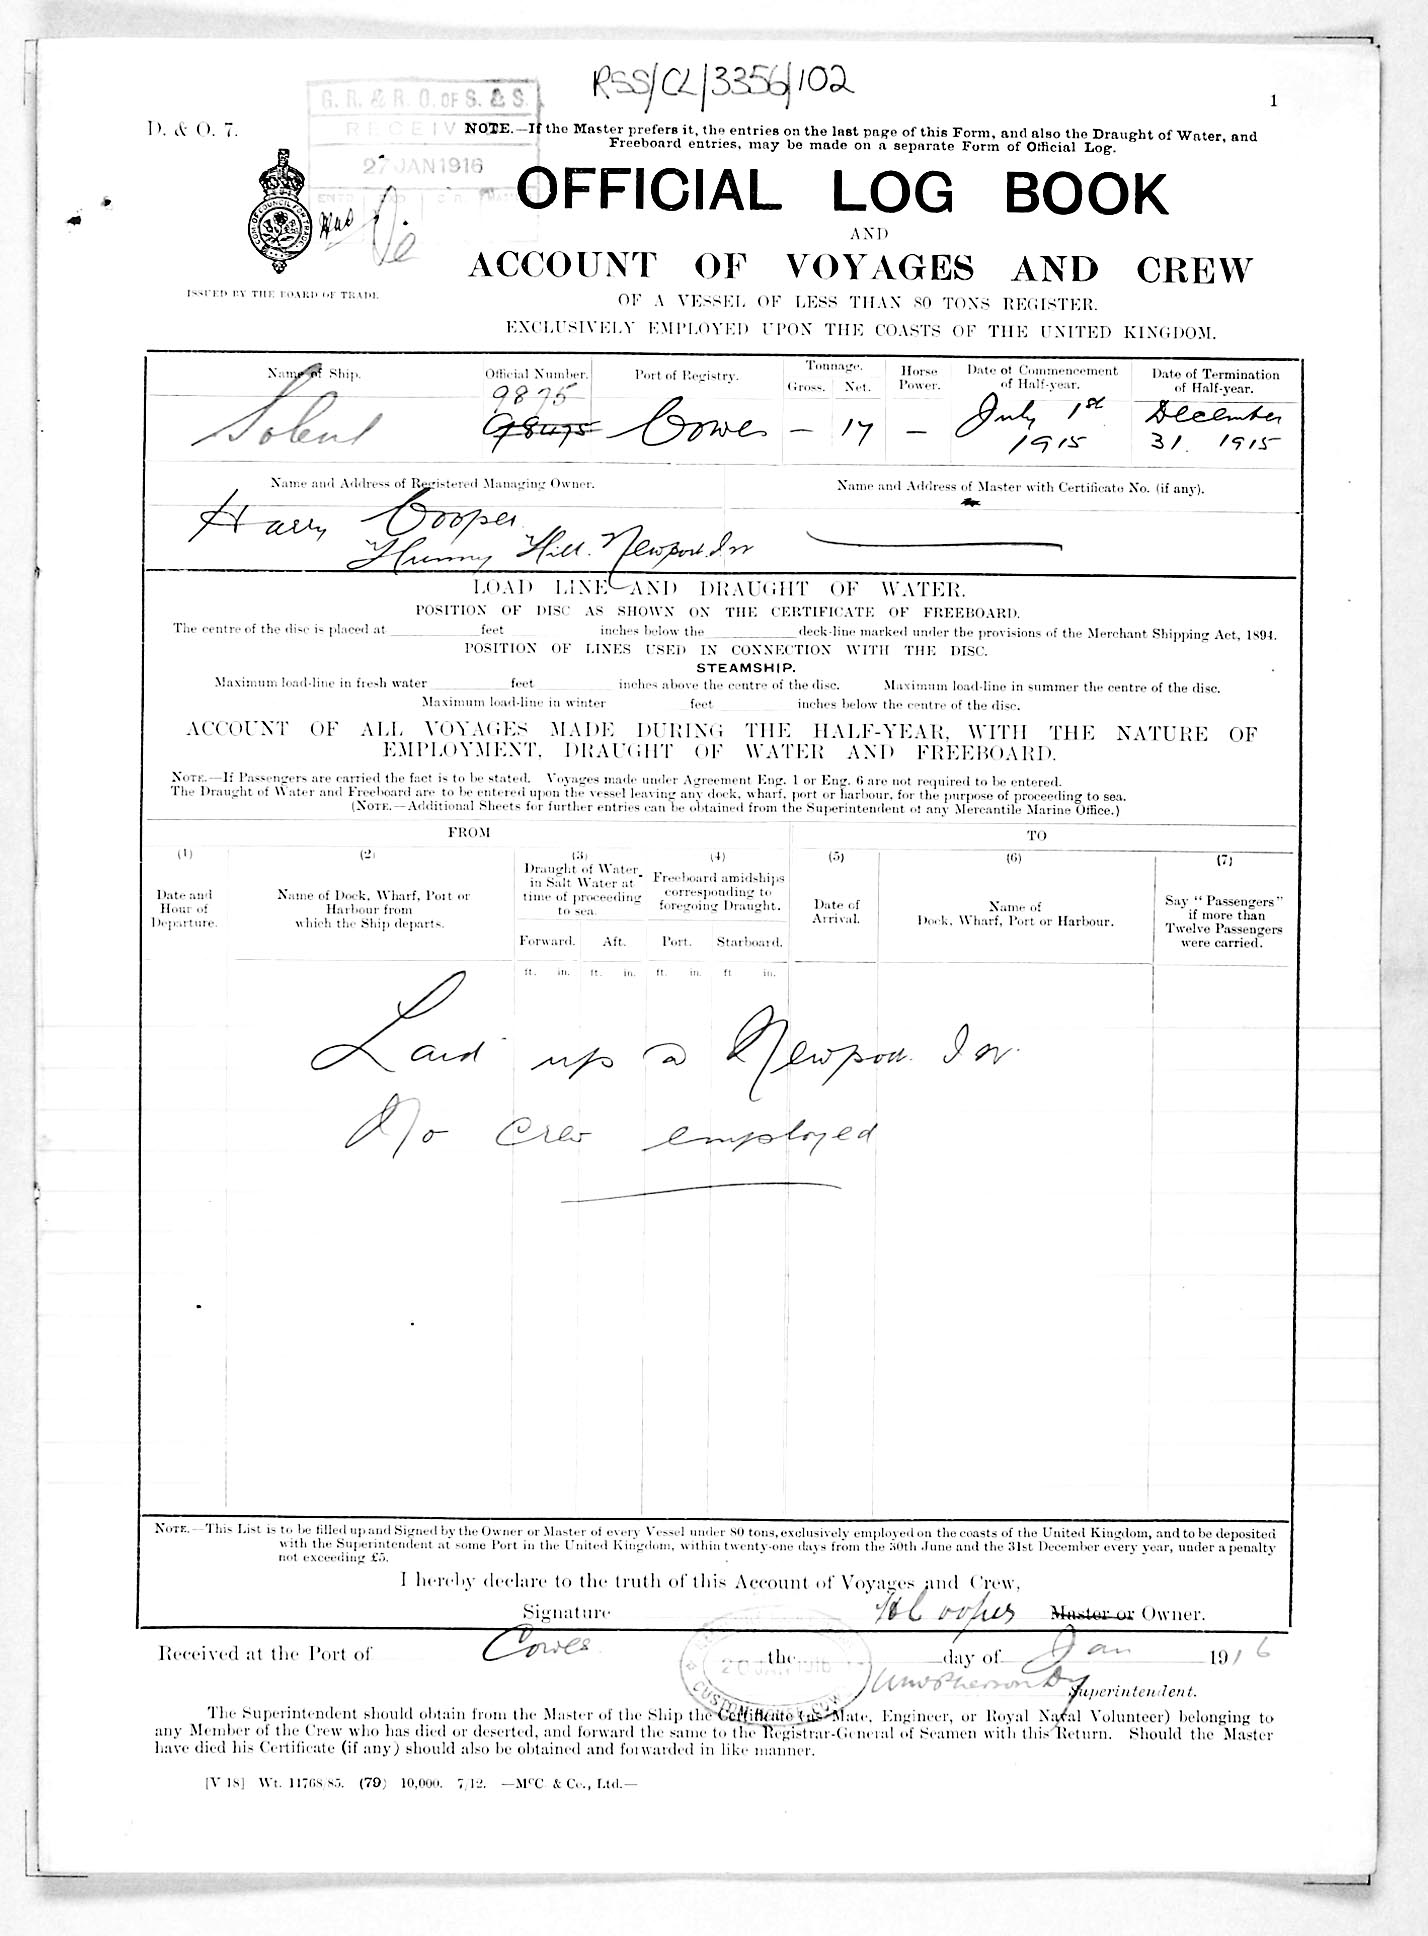 RSS/CL/3356/102
1
G. R. & R. O. OF S. & S.
RECEIV
27 JAN 1916
D. & O. 7.
NOTE.—If the Master prefers it, the entries on the last page of this Form, and also the Draught of Water, and
Freeboard entries, may be made on a separate Form of Official Log.
OFFICIAL LOG BOOK
AND
ACCOUNT OF VOYAGES AND CREW
ISSUED BY THE BOARD OF TRADE.
OF A VESSEL OF LESS THAN 80 TONS REGISTER.
EXCLUSIVELY EMPLOYED UPON THE COASTS OF THE UNITED KINGDOM.
Name of Ship. Official Number. Port of Registry. Tonnage. Gross. Net. Horse Power. Date of Commencement of Half-year. Date of Termination of Half-year.
9875
Solent 98475 Cowes — 17 — July 1st 1915 December 31. 1915
Name and Address of Registered Managing Owner. Name and Address of Master with Certificate No. (if any).
Harry Cooper
Hunny Hill. Newport. I W
LOAD LINE AND DRAUGHT OF WATER.
POSITION OF DISC AS SHOWN ON THE CERTIFICATE OF FREEBOARD.
The centre of the disc is placed at feet inches below the deck-line marked under the provisions of the Merchant Shipping Act, 1894.
POSITION OF LINES USED IN CONNECTION WITH THE DISC.
STEAMSHIP.
Maximum load-line in fresh water feet inches above the centre of the disc. Maximum load-line in summer the centre of the disc.
Maximum load-line in winter feet inches below the centre of the disc.
ACCOUNT OF ALL VOYAGES MADE DURING THE HALF-YEAR, WITH THE NATURE OF
EMPLOYMENT, DRAUGHT OF WATER AND FREEBOARD.
NOTE.—If Passengers are carried the fact is to be stated. Voyages made under Agreement Eng. 1 or Eng. 6 are not required to be entered.
The Draught of Water and Freeboard are to be entered upon the vessel leaving any dock, wharf, port or harbour, for the purpose of proceeding to sea.
(NOTE.—Additional Sheets for further entries can be obtained from the Superintendent of any Mercantile Marine Office.)
FROM TO
(1) (2) (3) (4) (5) (6) (7)
Date and Hour of Departure.
Name of Dock, Wharf, Port or Harbour from which the Ship departs.
Draught of Water in Salt Water at time of proceeding to sea.
Freeboard amidships corresponding to foregoing Draught.
Date of Arrival.
Name of Dock, Wharf, Port or Harbour.
Say "Passengers" if more than Twelve Passengers were carried.
Forward. Aft. Port. Starboard.
ft. in. ft. in. ft. in. ft in.
Laid up a Newport. I W.
No crew employed
NOTE.—This List is to be filled up and Signed by the Owner or Master of every Vessel under 80 tons, exclusively employed on the coasts of the United Kingdom, and to be deposited
with the Superintendent at some Port in the United Kingdom, within twenty-one days from the 30th June and the 31st December every year, under a penalty
not exceeding £5.
I hereby declare to the truth of this Account of Voyages and Crew,
Signature H Cooper Master or Owner.
Received at the Port of Cowes the day of Jan 1916
20 JAN 1916
CUSTOM HOUSE COW
Superintendent.
The Superintendent should obtain from the Master of the Ship the Certificate (as Mate, Engineer, or Royal Naval Volunteer) belonging to
any Member of the Crew who has died or deserted, and forward the same to the Registrar-General of Seamen with this Return. Should the Master
have died his Certificate (if any) should also be obtained and forwarded in like manner.
[V 18] Wt. 11768/85. (79) 10,000. 7/12. —McC & Co., Ltd.—